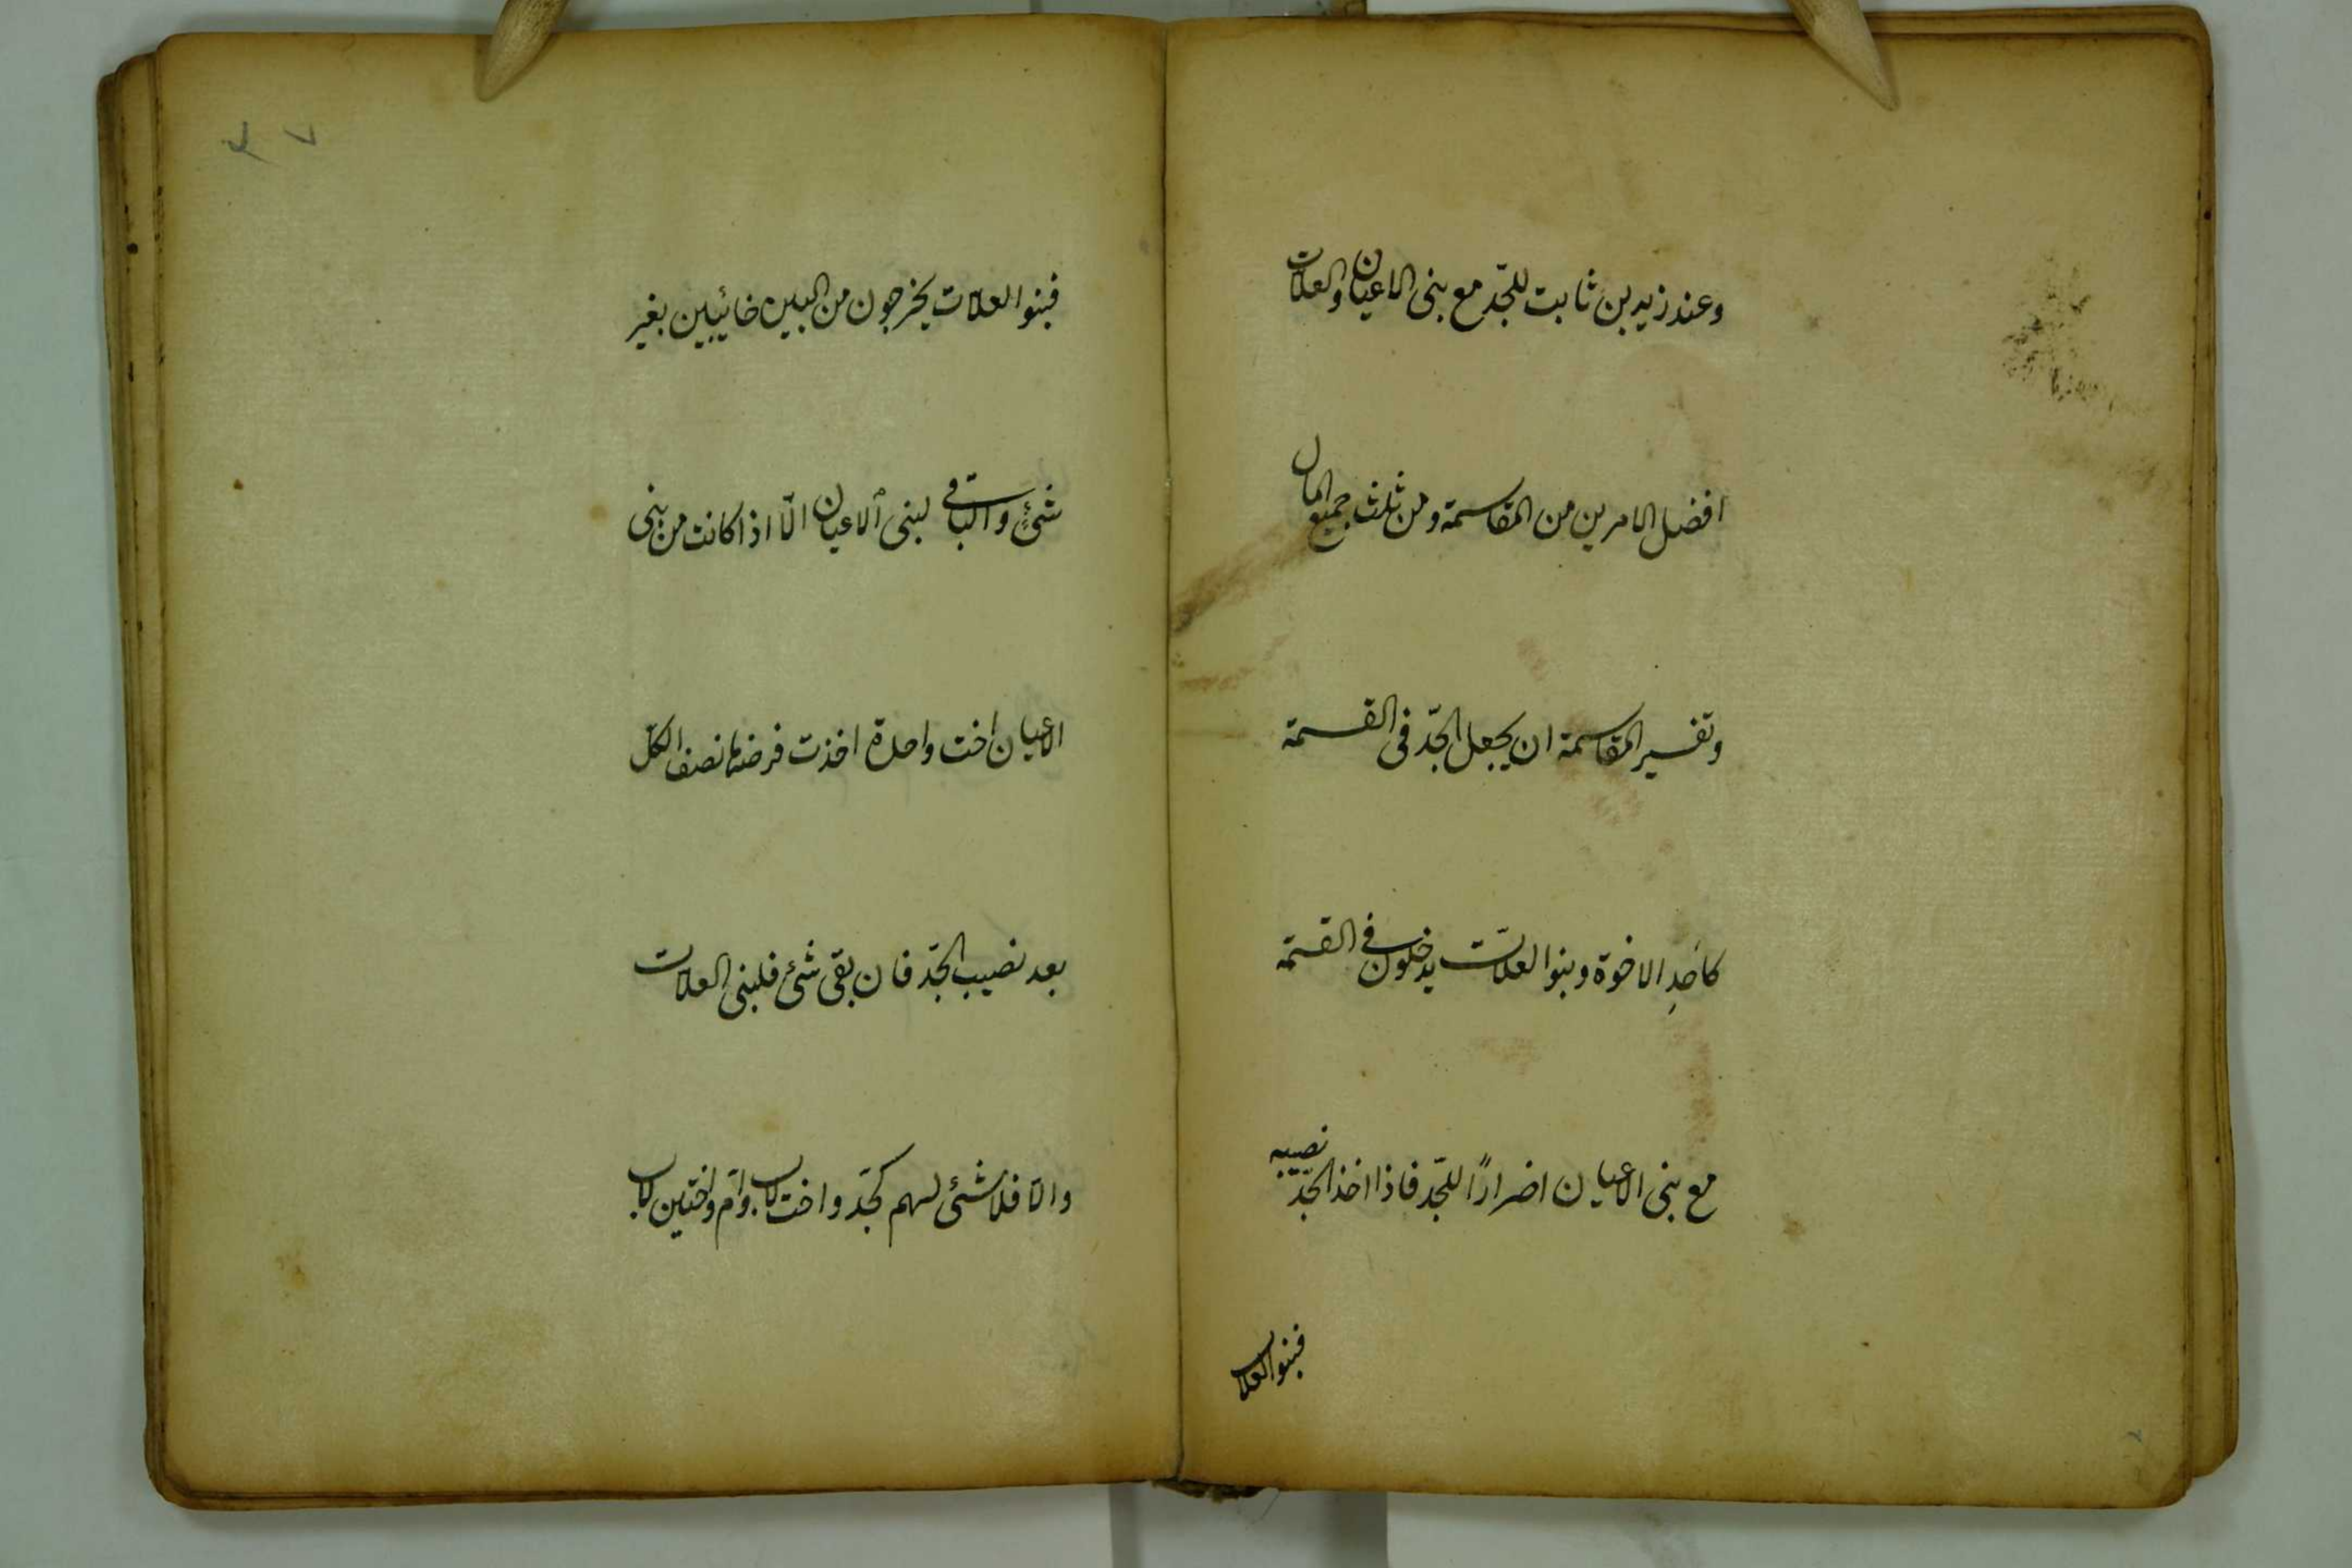 وعند زيد بن ثابت للجّد مع بنى الاعيان والعلات
افضل الامرين من المقاسمة ومن ثلث جميع المال
وتفسير المقاسمة ان يجعل الجّد فى القسمة
كاَحدِ الاخوة وبنوا العلاّت يدخلون فى القسمة
مع بنى الاعيان اضرارًا للجّد فاذا اخذ الجّد نصيبه
فبنوا العلات
فبنوا العلات يخرجون من البين خائبين بغير
شئٍ والباقى لبنى الاعيان الّا اذا كانت من بنى
الاعيان اخت واحدة اخذت فرضها نصف الكلّ
بعد نصيب الجّد فان بقى شئ فلبنى العلات
والّا فلا شئ لهم كجّد واخت لاب وامّ واختين لاب